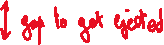 ↕ gap to get ejected